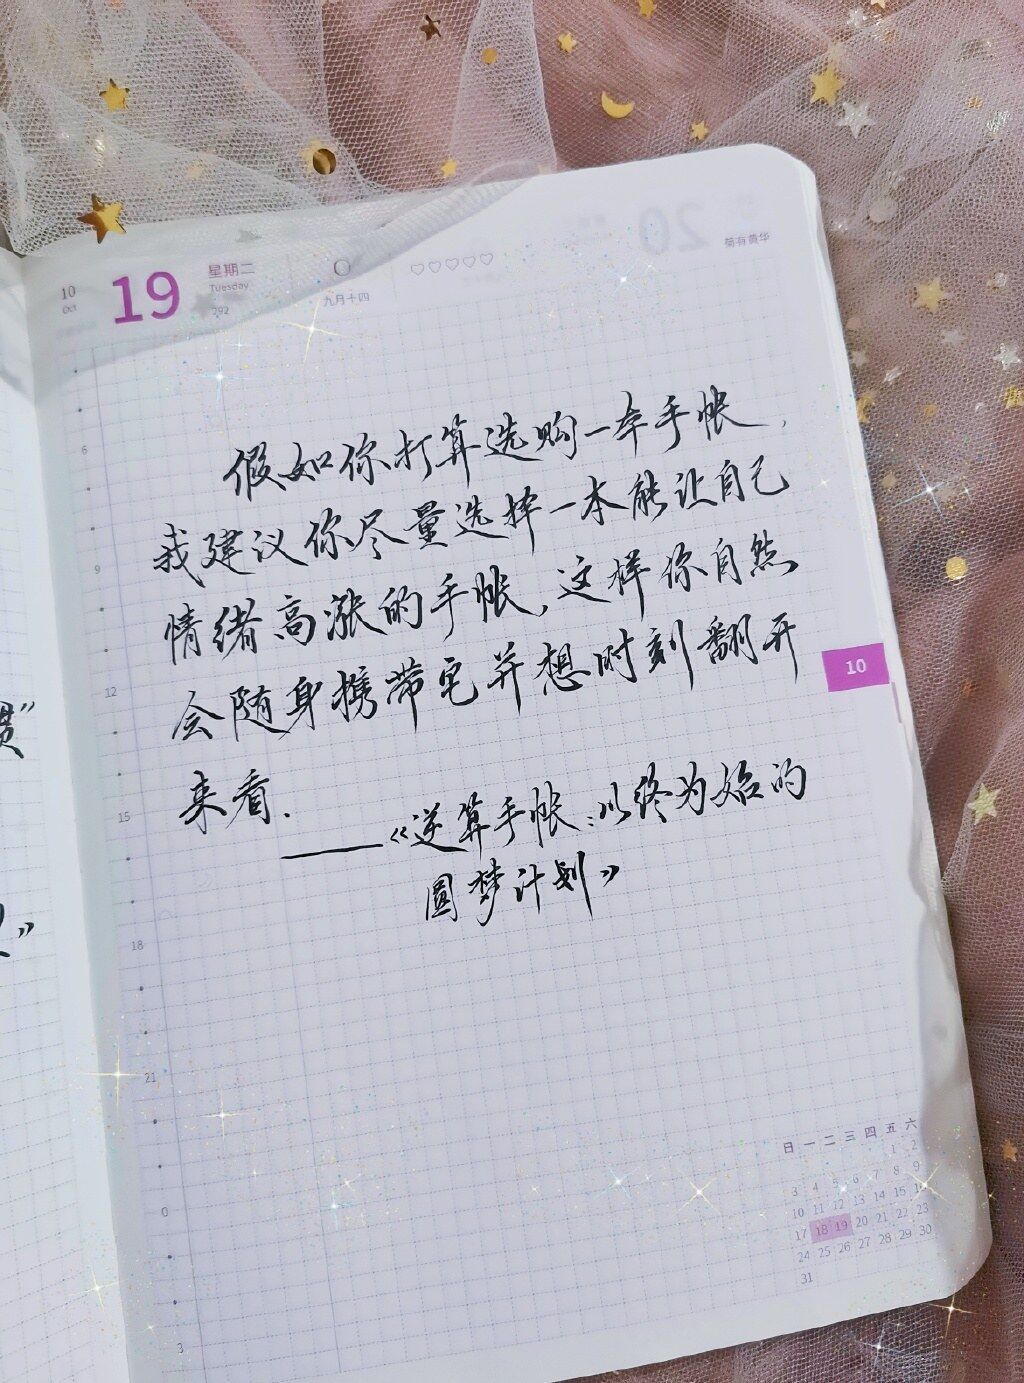 10
Oct
19
星期二
Tuesday
292
九月十四
♡♡♡♡♡
20
菊有黄华
假如你打算选购一本手帐,
我建议你尽量选择一本能让自己
情绪高涨的手帐,这样你自然
会随身携带它并想时刻翻开
来看.
——《逆算手帐:以终为始的
圆梦计划》
6
9
12
15
18
21
0
3
10
惯”
》
日 一 二 三 四 五 六
1 2
3 4 5 6 7 8 9
10 11 12 13 14 15 16
17 18 19 20 21 22 23
24 25 26 27 28 29 30
31